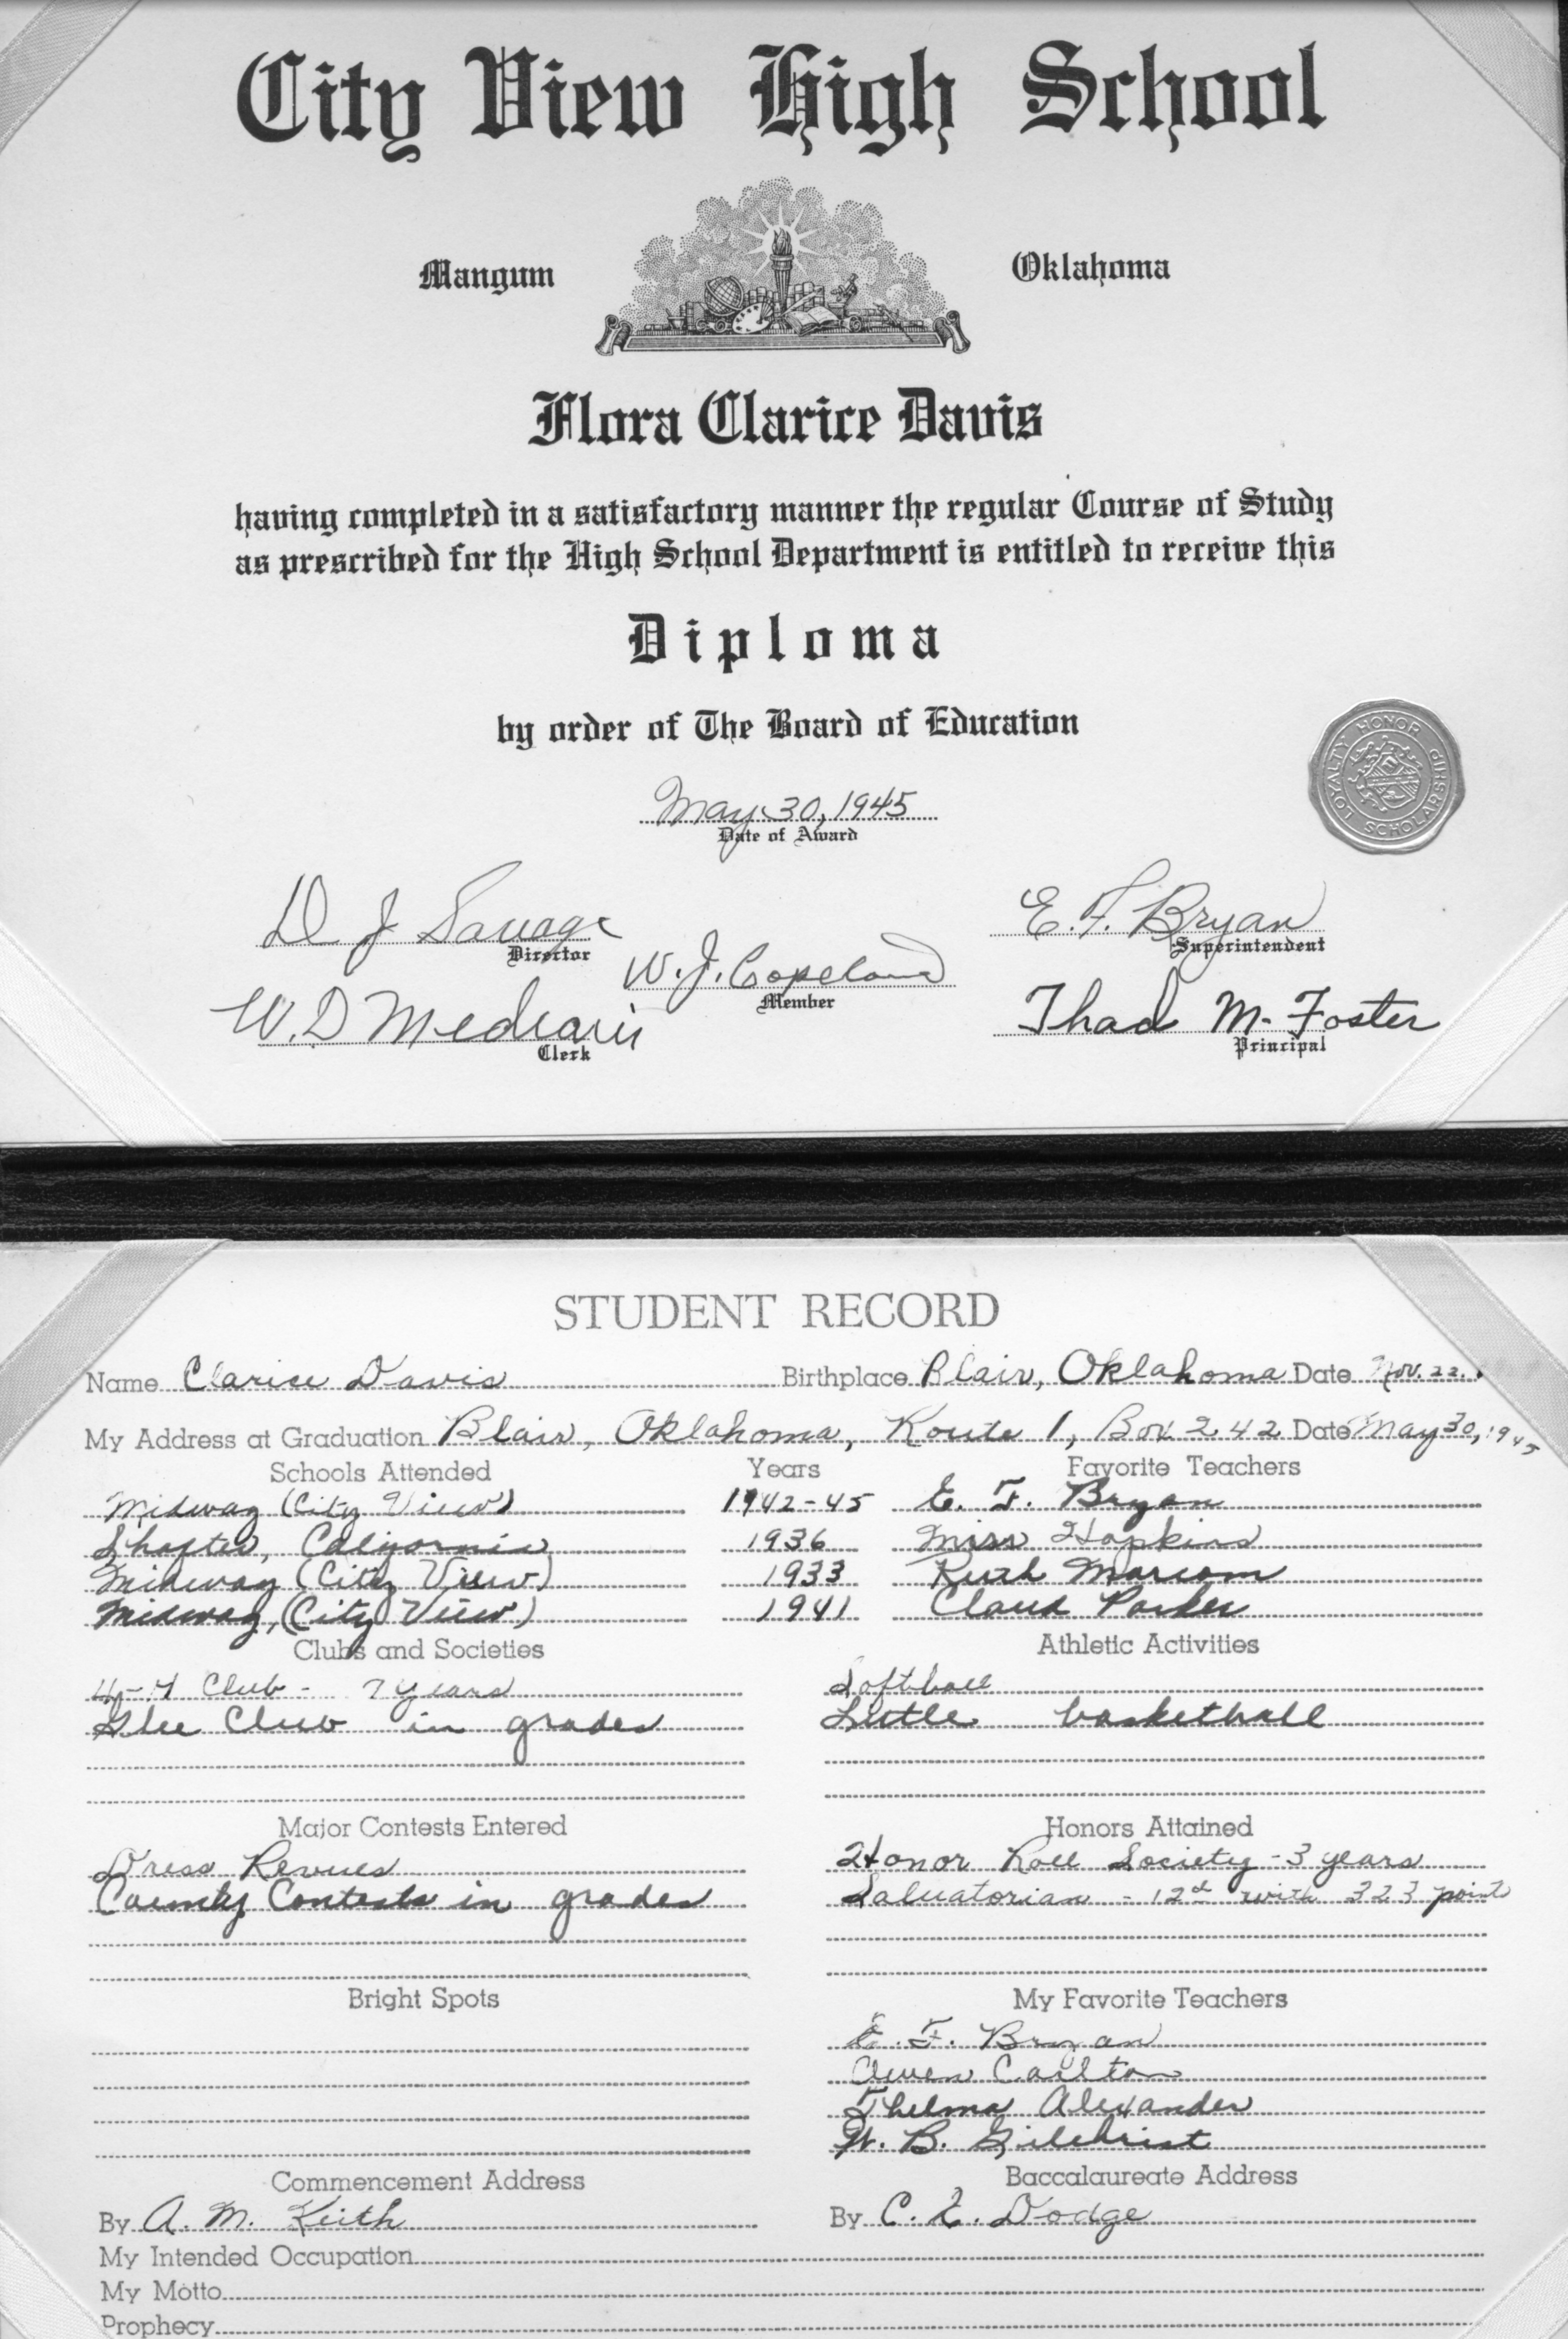 City View High School
Mangum Oklahoma
Flora Clarice Davis
having completed in a satisfactory manner the regular Course of Study
as prescribed for the High School Department is entitled to receive this
Diploma
by order of The Board of Education
May 30, 1945
Date of Award
LOYALTY HONOR SCHOLARSHIP
D J Savage
Director
E. F. Bryan
Superintendent
W. J. Copeland
Member
W. D Medearis
Clerk
Thad M. Foster
Principal
STUDENT RECORD
Name Clarice Davis Birthplace Blair, Oklahoma Date Nov. 22.
My Address at Graduation Blair, Oklahoma, Route 1, Box 242 Date May 30, 1945
Schools Attended Years Favorite Teachers
Midway (City View) 1942-45 E. F. Bryan
Shafter, California 1936 Miss Hopkins
Midway (City View) 1933 Ruth Marcom
Midway, (City View) 1941 Claud Parker
Clubs and Societies Athletic Activities
4-H Club - 7 years Softball
Glee Club in grades Little basketball
Major Contests Entered Honors Attained
Dress Revues Honor Roll Society - 3 years
County Contests in grades Saluatorian - 12th with 323 points
Bright Spots My Favorite Teachers
E. F. Bryan
Carlton
Thelma Alexander
W. B. Gilchrist
Commencement Address Baccalaureate Address
By A. M. Keith By C. E. Dodge
My Intended Occupation
My Motto
Prophecy